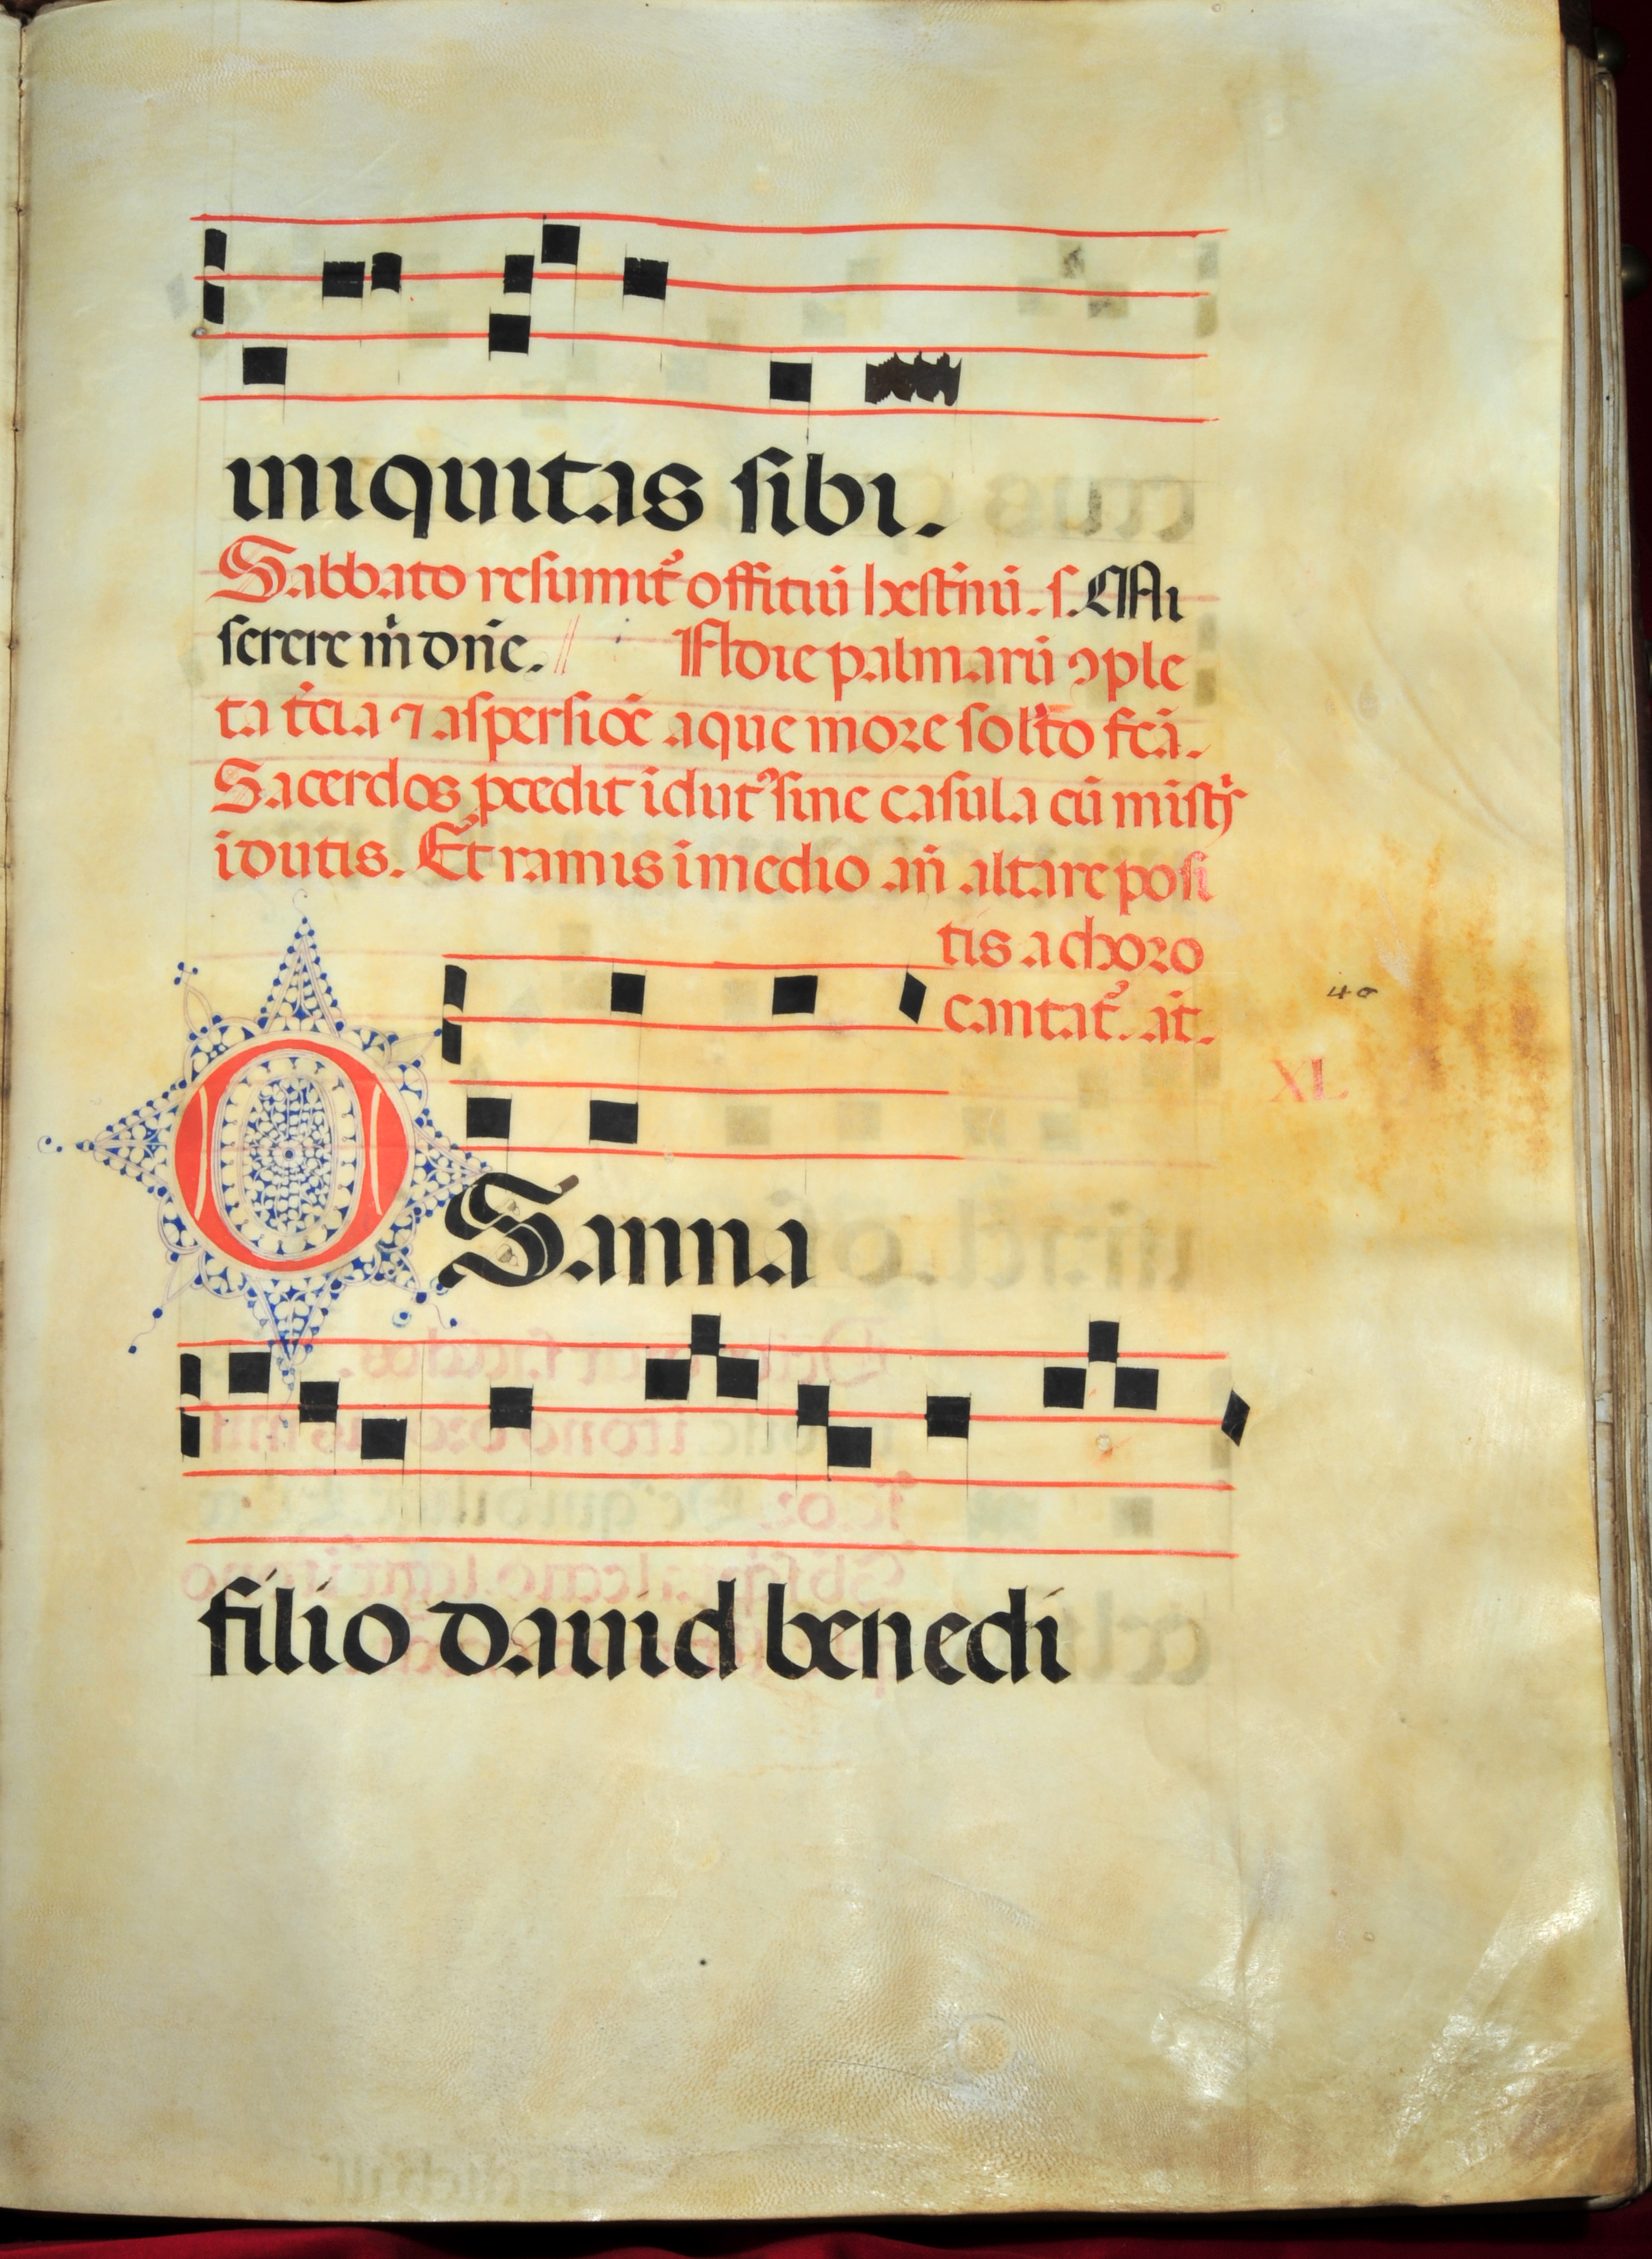 iniquitas sibi.
Sabbato resumit᷑ offitiū hestīnū. s. Mi
serere m̄ dn̄e. // In die palmarū ꝯple
ta t̄cia ⁊ aspersiōe aque more solito fc̄a.
Sacerdos pcedit īdut᷑ sine casula cū mistris
īdutis. Et ramis ī medio an̄ altare posi
tis a choro
cantat᷑. an̄.
40
XL
OSanna
filio dauid benedi